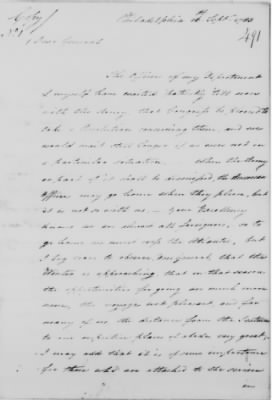 Copy
No 1
491
Philadelphia 16 Sept. 1783
Dear General
The Officers of my Department
& myself have waited patiently till now
with the Army, that Congress be pleased to
take a Resolution concerning them, and we
would wait still longer if we were not in
a particular situation. when the Army
or part of it shall be dismissed, the American
officer may go home when they please, but
it is not so with us — your Excellency
knows we are almost all Foreigners, so to
go home we must cross the Atlantic, but
I beg leave to observe Dear general, that the
Winter is approaching, that in that season
the opportunities for going are much more
rare, the voyage not pleasant, and for
many of us the distance from the
to our respective places of abode very great,
I may add that it is of some importance
for those who are attached to the service